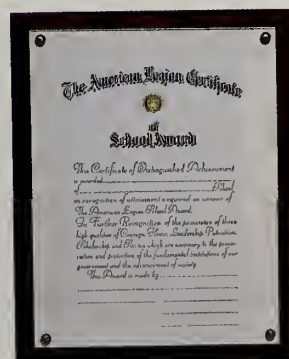 The American Legion Certificate
of
School Award
This Certificate of Distinguished Achievement
is awarded
of School
in recognition of attainment required as winner of
The American Legion School Award.
In Further Recognition of the possession of those
high qualities of Courage, Honor, Leadership, Patriotism,
Scholarship and Service which are necessary to the preser-
vation and protection of the fundamental institutions of our
government and the advancement of society
This Award is made by